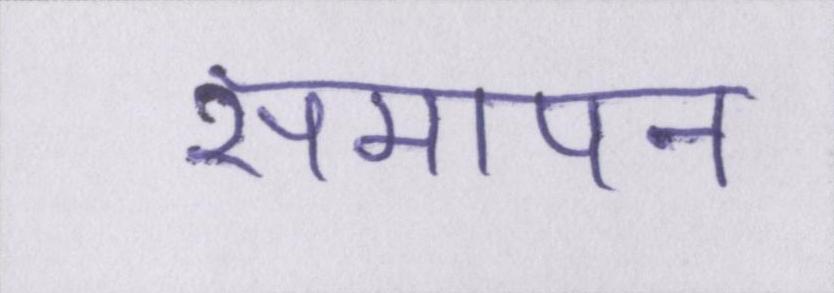 समापन